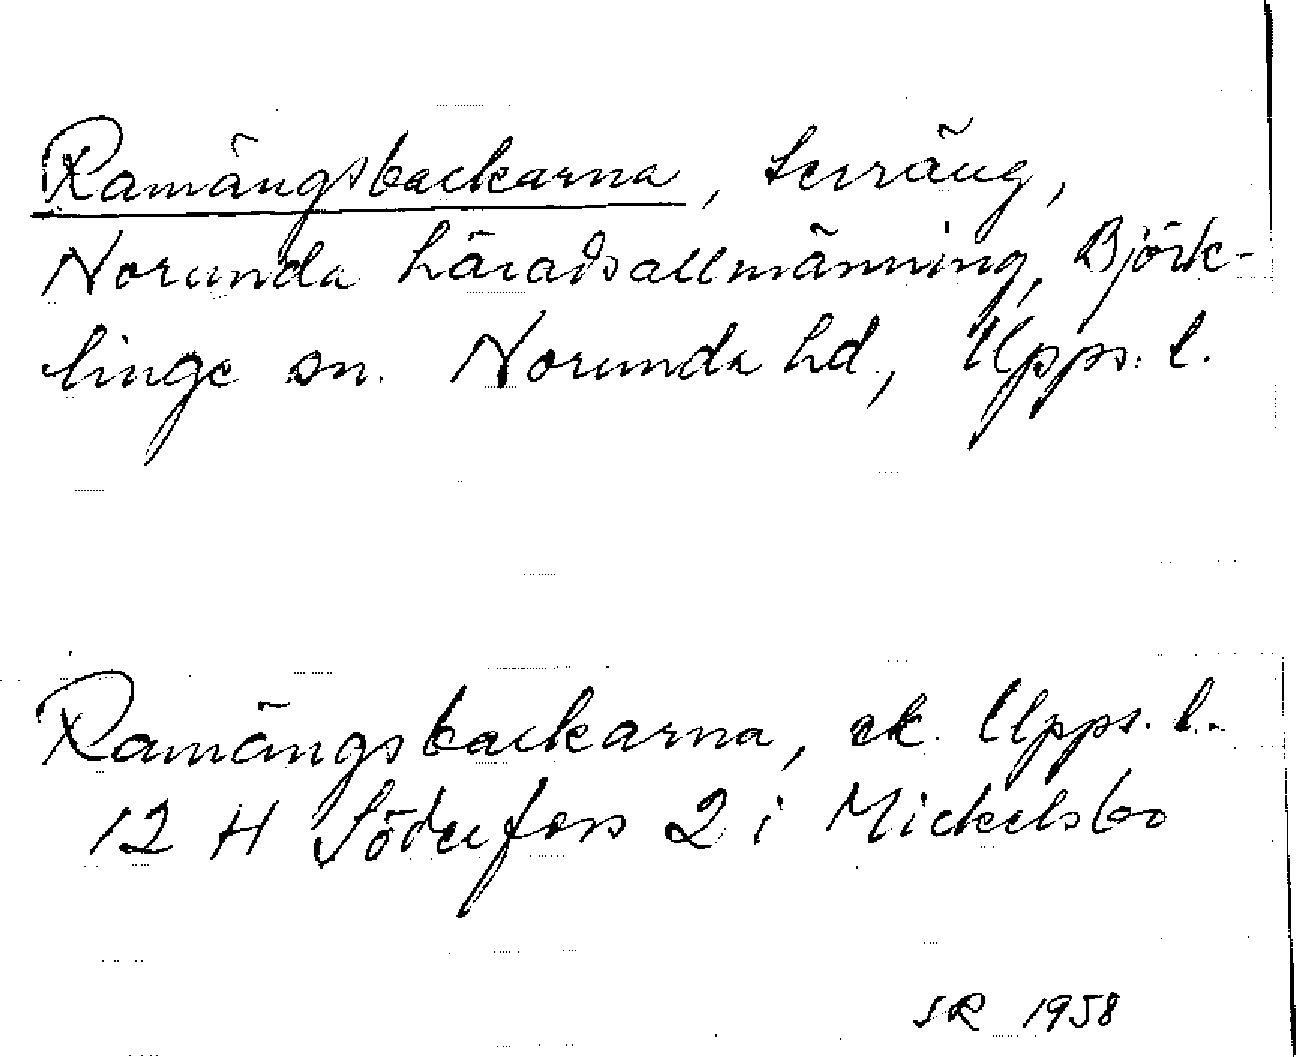 Ramängsbackarna, terräng,
Norunda häradsallmänning, Björk-
linge sn. Norunda hd., Upps. l.
Ramängsbackarna, ek. Upps. l.
12 H Söderfors 2 i Mickelsbo
SR 1958